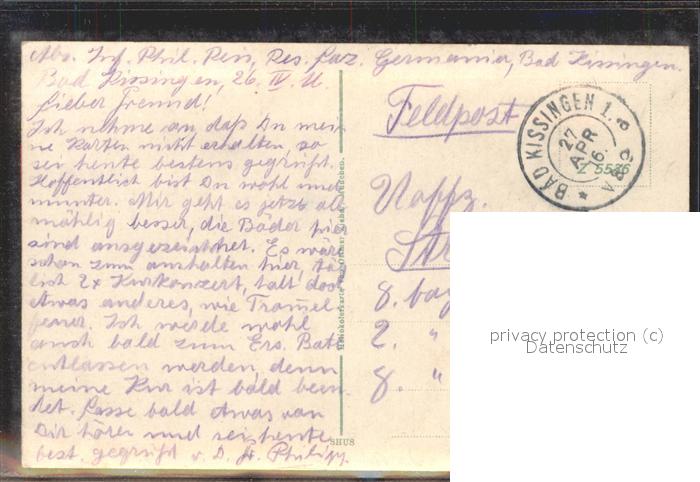 Abs. Inf. Phil. Reis, Res. Laz. Germania, Bad Kissingen.
Bad Kissingen, 26. IV.
Lieber Freund!
Ich nehme an, daß Du mei
ne Karten nicht erhalten, so
sei heute bestens gegrüßt.
Hoffentlich bist Du wohl und
munter. Mir geht es jetzt all
mählig besser, die Bäder hie
sind ausgezeichnet. Es wäre
schon zum aushalten hier, täg
lich 2x Kurkonzert, halt doch
etwas anderes, wie Trommel
feuer. Ich werde wohl
auch bald zum Ers. Batl
entlassen werden, denn
meine Kur ist bald been
det. Lasse bald etwas von
Dir hören und sei heute
best. gegrüßt v. D. Philipp.
SHUS
Feldpost
BAD KISSINGEN 1.
27 APR 16.
Z 5536
Uoffz.
8. bay
2. "
8. "
privacy protection (c)
Datenschutz